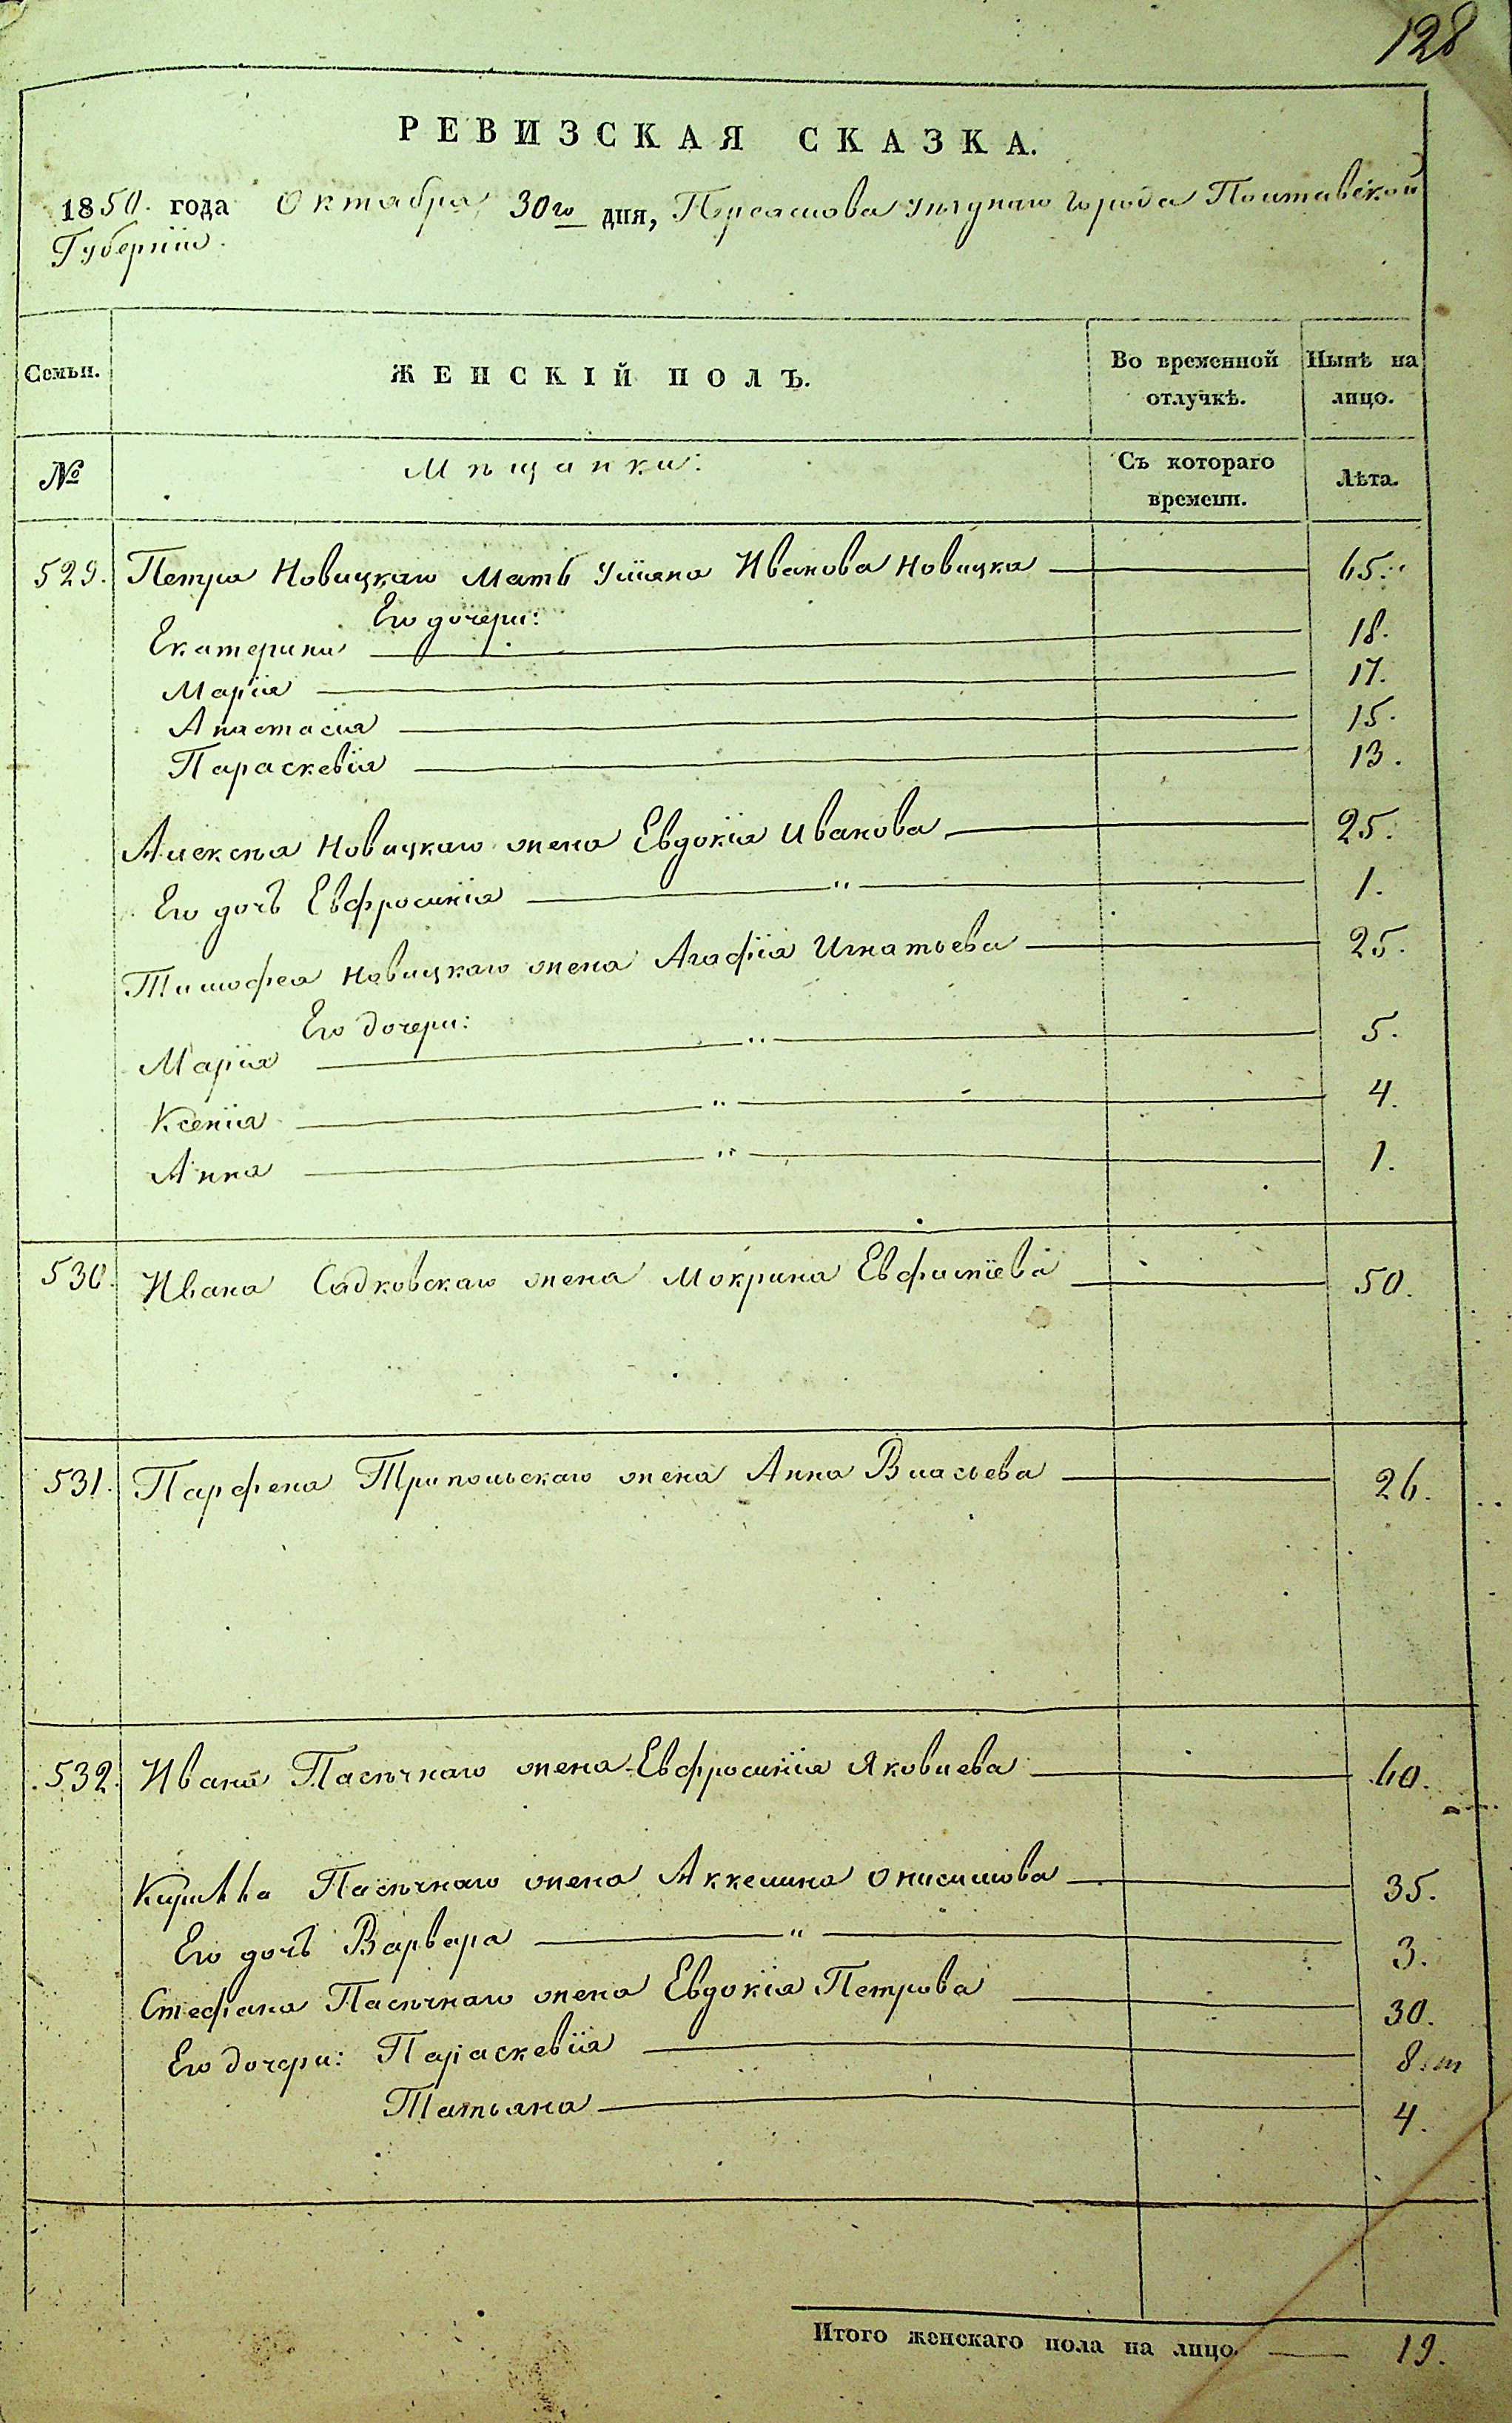 128
РЕВИЗСКАЯ СКАЗКА.
1850. года Октября 30го дня, Переяслова уѣзднаго города Полтавской
Губерніи.
Семьи. ЖЕНСКІЙ ПОЛЪ. Во временной отлучкѣ. Нынѣ на лицо.
№ Мѣщанки: Съ котораго времени. Лѣта.
529. Петра Новицкаго мать Уліяна Иванова Новицка 65.
Его дочери:
Екатерина 18.
Марія 17.
Анастасія 15.
Параскевія 13.
Алексѣя Новицкаго жена Евдокія Иванова 25.
Его дочь Евфросинія " 1.
Тимофея Новицкаго жена Агафія Игнатьева 25.
Его дочери:
Марія " 5.
Ксенія " 4.
Анна " 1.
530. Ивана Садковскаго жена Мокрина Евфиміева 50.
531. Парфена Трипольскаго жена Анна Власьева 26.
532. Ивана Пасѣчнаго жена Евфросинія Яковлева 60.
Кирилла Пасѣчнаго жена Аккелина Онисимова 35.
Его дочь Варвара " 3.
Стефана Пасѣчнаго жена Евдокія Петрова 30.
Его дочери: Параскевія 8.
Татьяна 4.
Итого женскаго пола на лицо. 19.